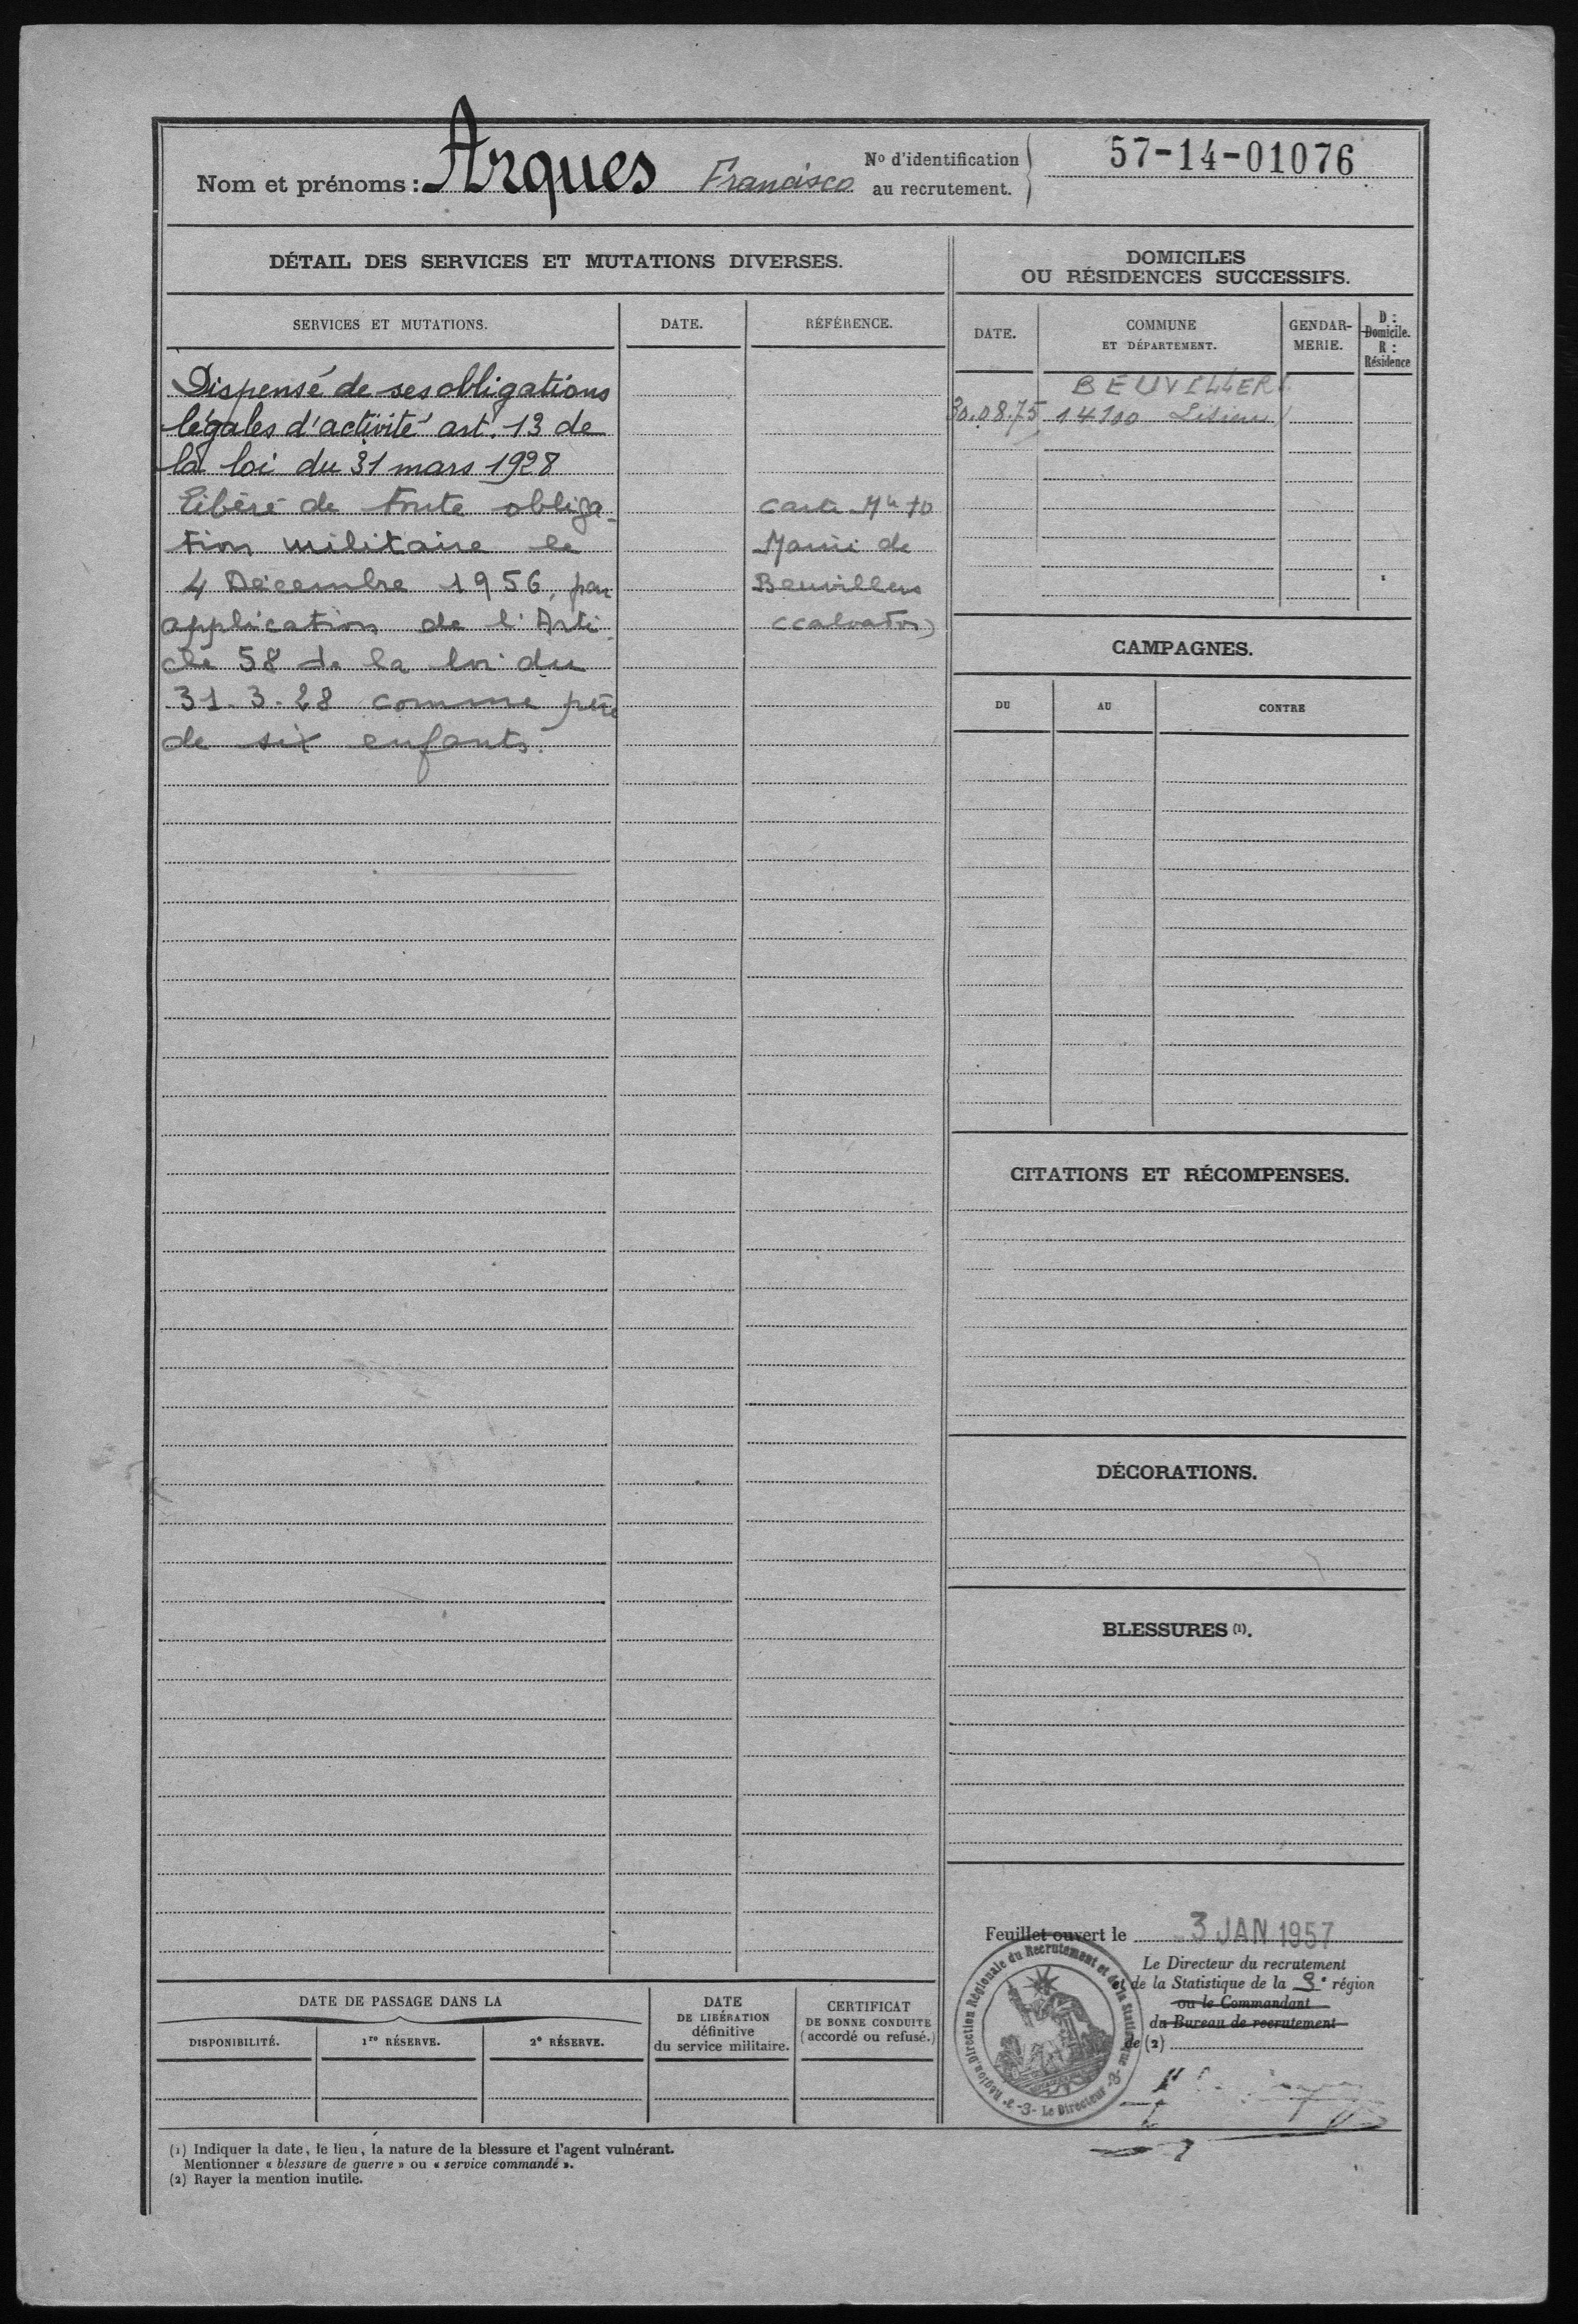 Nom et prénoms : Arques Francisco
N° d'identification
au recrutement.
57-14-01076
DÉTAIL DES SERVICES ET MUTATIONS DIVERSES.
SERVICES ET MUTATIONS.
DATE.
RÉFÉRENCE.
Dispensé de ses obligations
légales d'activité art. 13 de
la loi du 31 mars 1928
Libéré de toute obliga-
tion militaire le
4 Décembre 1956, par
application de l'Arti-
cle 58 de la loi du
31-3-28 comme père
de six enfants.
Carte
Mairie de
Beuvillers
(Calvados)
DOMICILES
OU RÉSIDENCES SUCCESSIFS.
DATE.
COMMUNE
ET DÉPARTEMENT.
GENDAR-
MERIE.
D :
Domicile.
R :
Résidence
BEUVILLERS
30.08.75 14100 Lisieux
CAMPAGNES.
DU
AU
CONTRE
CITATIONS ET RÉCOMPENSES.
DÉCORATIONS.
BLESSURES (1).
Feuillet ouvert le 3 JAN 1957
Le Directeur du recrutement
et de la Statistique de la 3e région
ou le Commandant
du Bureau de recrutement
de (2)
Région Direction Régionale du Recrutement et de la Statistique
-3- Le Directeur -3-
DATE DE PASSAGE DANS LA
DISPONIBILITÉ.
1re RÉSERVE.
2e RÉSERVE.
DATE
DE LIBÉRATION
définitive
du service militaire.
CERTIFICAT
DE BONNE CONDUITE
(accordé ou refusé.)
(1) Indiquer la date, le lieu, la nature de la blessure et l'agent vulnérant.
Mentionner « blessure de guerre » ou « service commandé ».
(2) Rayer la mention inutile.